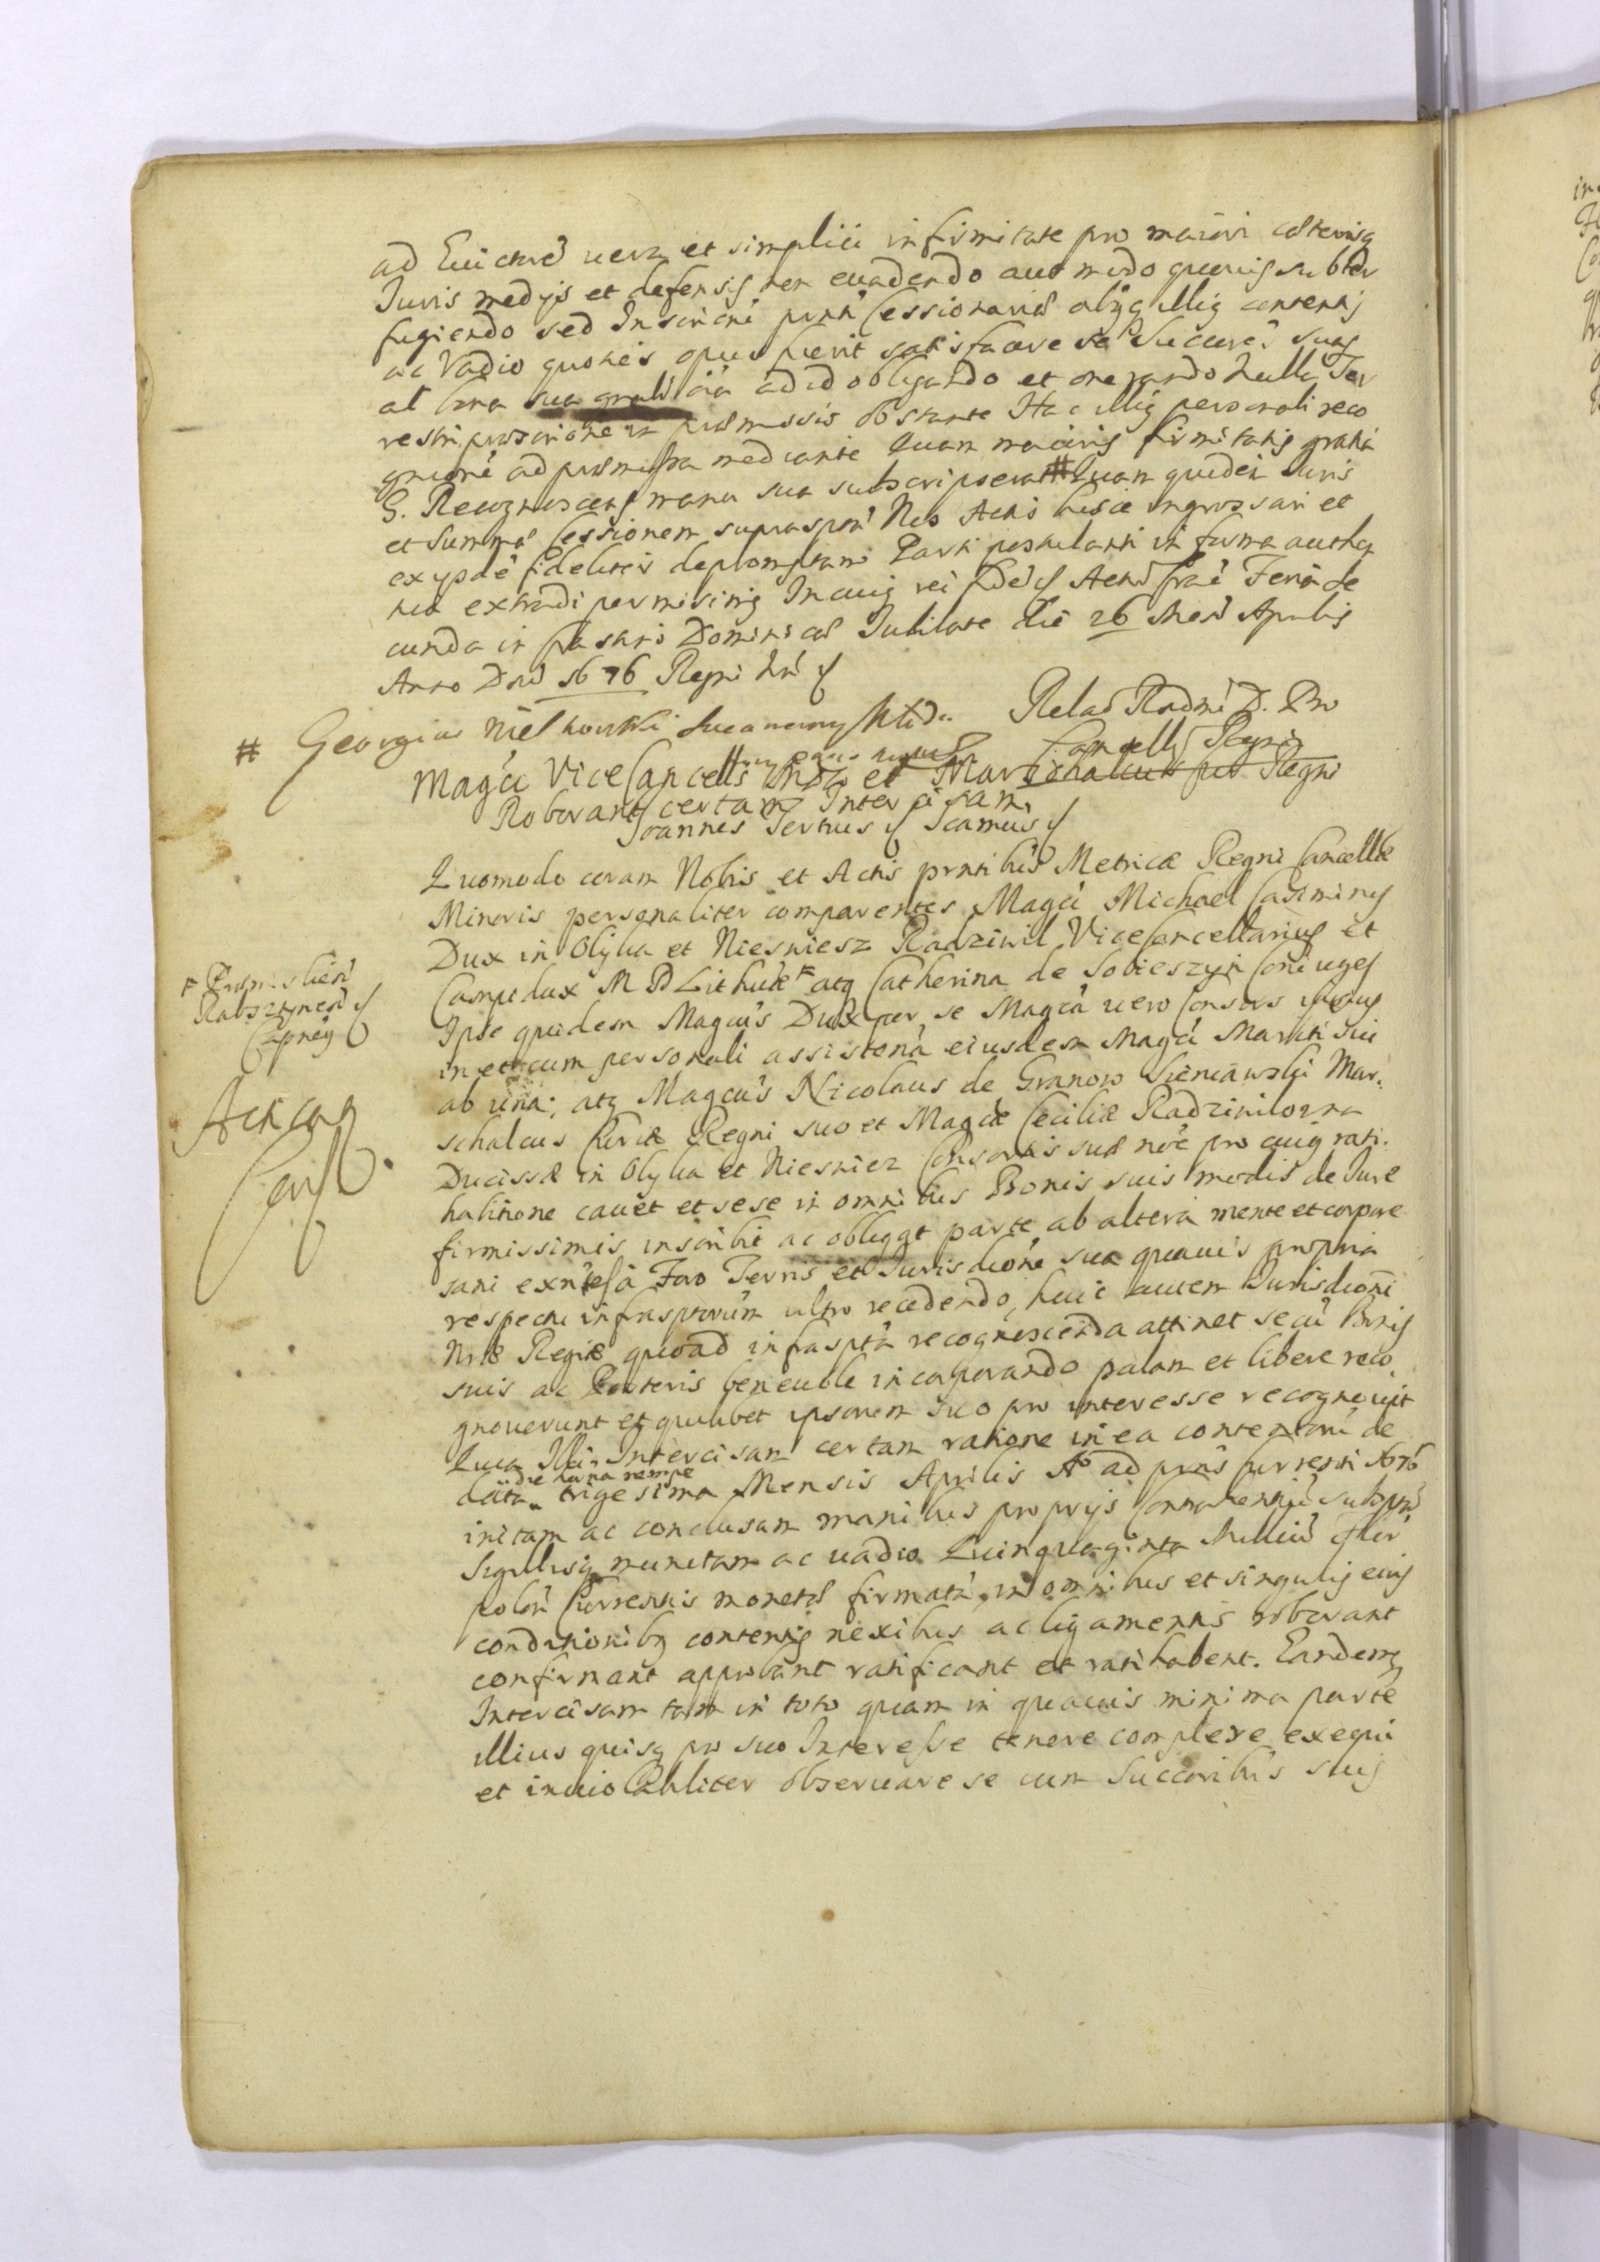 ad Euictoré uera et simplici infirmitate pro maiori caeterisq
Juris medijs et defensis non euadendo aut modo quouis subter
fugiendo sed Inscrioni prnti Cessionariae alijq illig contentis
ac Vadio quoties opus fuerit satisfacere se Succores suos
at bona sua gnalr oia ad id obligando et onerando nulla Ter
restri proscriptione in praemissis obstante Hac illig personali reco
gnicone ad praemissa mediante Quam maioris firmitatis gratia
G. Recognoscens manu sua subscripserat # Quam quidem Juris
et Summae Cessionem supraspta Nos Actis hisce ingrossari et
exysde fideliter depromptam Parti postulanti in forma authen
tica extradi permisimus Incuius rei fidem Actum Craé Feria Se
cunda in Crastino Dominicae Jubilate die 26 Mens Aprilis
Anno Dni 1676 Regni Nri
# Georgius Nielkowski
Relao Rndni D. Pro
Cancellj Regni
Magci ViceCancells MDL et Marschalcus Regni
Roborant certam Intercisam
Joannes Tertius Scamus
Quomodo coram Nobis et Actis prntibus Metricae Regni Cancellae
Minoris personaliter comparentes Magci Michael Casimirus
Dux in Olyka et Nieswiesz Radziwil ViceCancellarius et
Campidux M D Lithuae # atq Catherina de Sobieszyn Coniuges
# Praemislien
Rabsztynen
Capneus
Ipse quidem Magcus Dux per se Magca uero Consors ipsius
in et cum personali assistena eiusdem Magci Mariti sui
ab una; atq Magcus Nicolaus de Granow Sieniawski Mar.
schalcus Curiae Regni suo et Magcae Ceciliae Radziwilowna
Ducissae in Olyka et Nieswiez Consortis suae noe pro cuius rati.
habitione cauet et sese in omnibus Bonis suis modis de Jure
firmissimis inscribit ac obligat parte ab altera mente et corpore
sani exntes a Foro Terris et Jurisdione sua quauis propria
respectu infrasptorum ultro recedendo, huic autem Jurisdioni
Nrae Regiae quoad infraspta recognoscenda attinet secu Bonis
suis ac Posteris beneuole incorporando palam et libere reco
gnouerunt et quilibet ipsorum suo pro interesse recognouit
Quia Illi Intercisam certam ratione in ea contentorum de
die horna nempe
data trigesima Mensis Aprilis Ao ad prns currenti 1676
initam ac conclusam manibus proprijs Contrahentiu subsptam
Sigillisq munitam ac uadio Quinquaginta Milliu fler
polon Currentis monetae firmatam, in omnibus et singulis eius
conditionibq contentis nexibus ac ligamentis roborant
confirmant approbant ratificant et ratihabent. Eandemq
Intercisam tam in toto quam in quauis minima parte
illius quisq pro suo Interesse tenere complere exequi
et inuiolabiliter obseruare se cum Succoribus suis